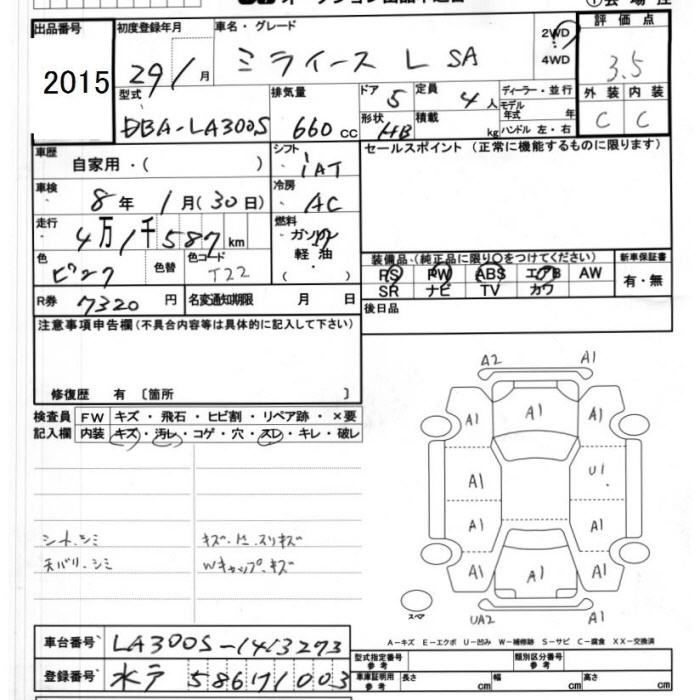 出品番号 初度登録年月 車名・グレード 評価点
2015 29/1月 ミライース L SA 2WD 4WD 3.5
型式 排気量 ドア 定員 ディーラー・並行 外装 内装
DBA-LA300S 660 cc 5 4人 モデル年式 年 C C
形状 HB 積載 kg ハンドル 左・右
車歴 自家用・( ) シフト IAT セールスポイント (正常に機能するものに限ります)
車検 8年 1月(30日) 冷房 AC
走行 4万1千587km 燃料 ガソリン 軽油 ( ・ )
色 ピンク 色替 色コード T22
装備品・(純正品に限り〇をつけてください) 新車保証書
PS PW ABS エアB AW 有・無
SR ナビ TV カワ
R券 7320 円 名変通知期限 月 日 後日品
注意事項申告欄(不具合内容等は具体的に記入して下さい)
修復歴 有 〔箇所 〕
検査員 FW キズ・飛石・ヒビ割・リペア跡・×要
記入欄 内装 キズ・汚レ・コゲ・穴・スレ・キレ・破レ
A2 A1
A1 A1 A1
A1 U1
A1 A1
A1 A1 A1
UA2 A1
スペア
シート.シミ キズ.ド.スリキズ
天バリ.シミ Wキャップ.キズ
A-キズ E-エクボ U-凹み W-補修跡 S-サビ C-腐食 XX-交換済
車台番号 LA300S-1413273
登録番号 水戸 586 71003
型式指定番号 参考 類別区分番号 参考
車庫証明用 参考 長さ cm 幅 cm 高さ cm